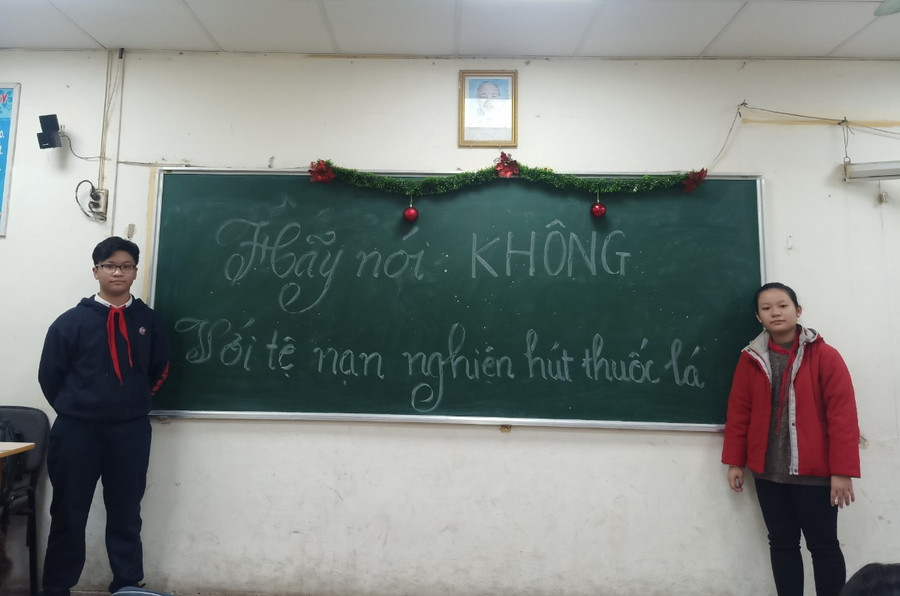 Hãy nói KHÔNG
Với tệ nạn nghiện hút thuốc lá